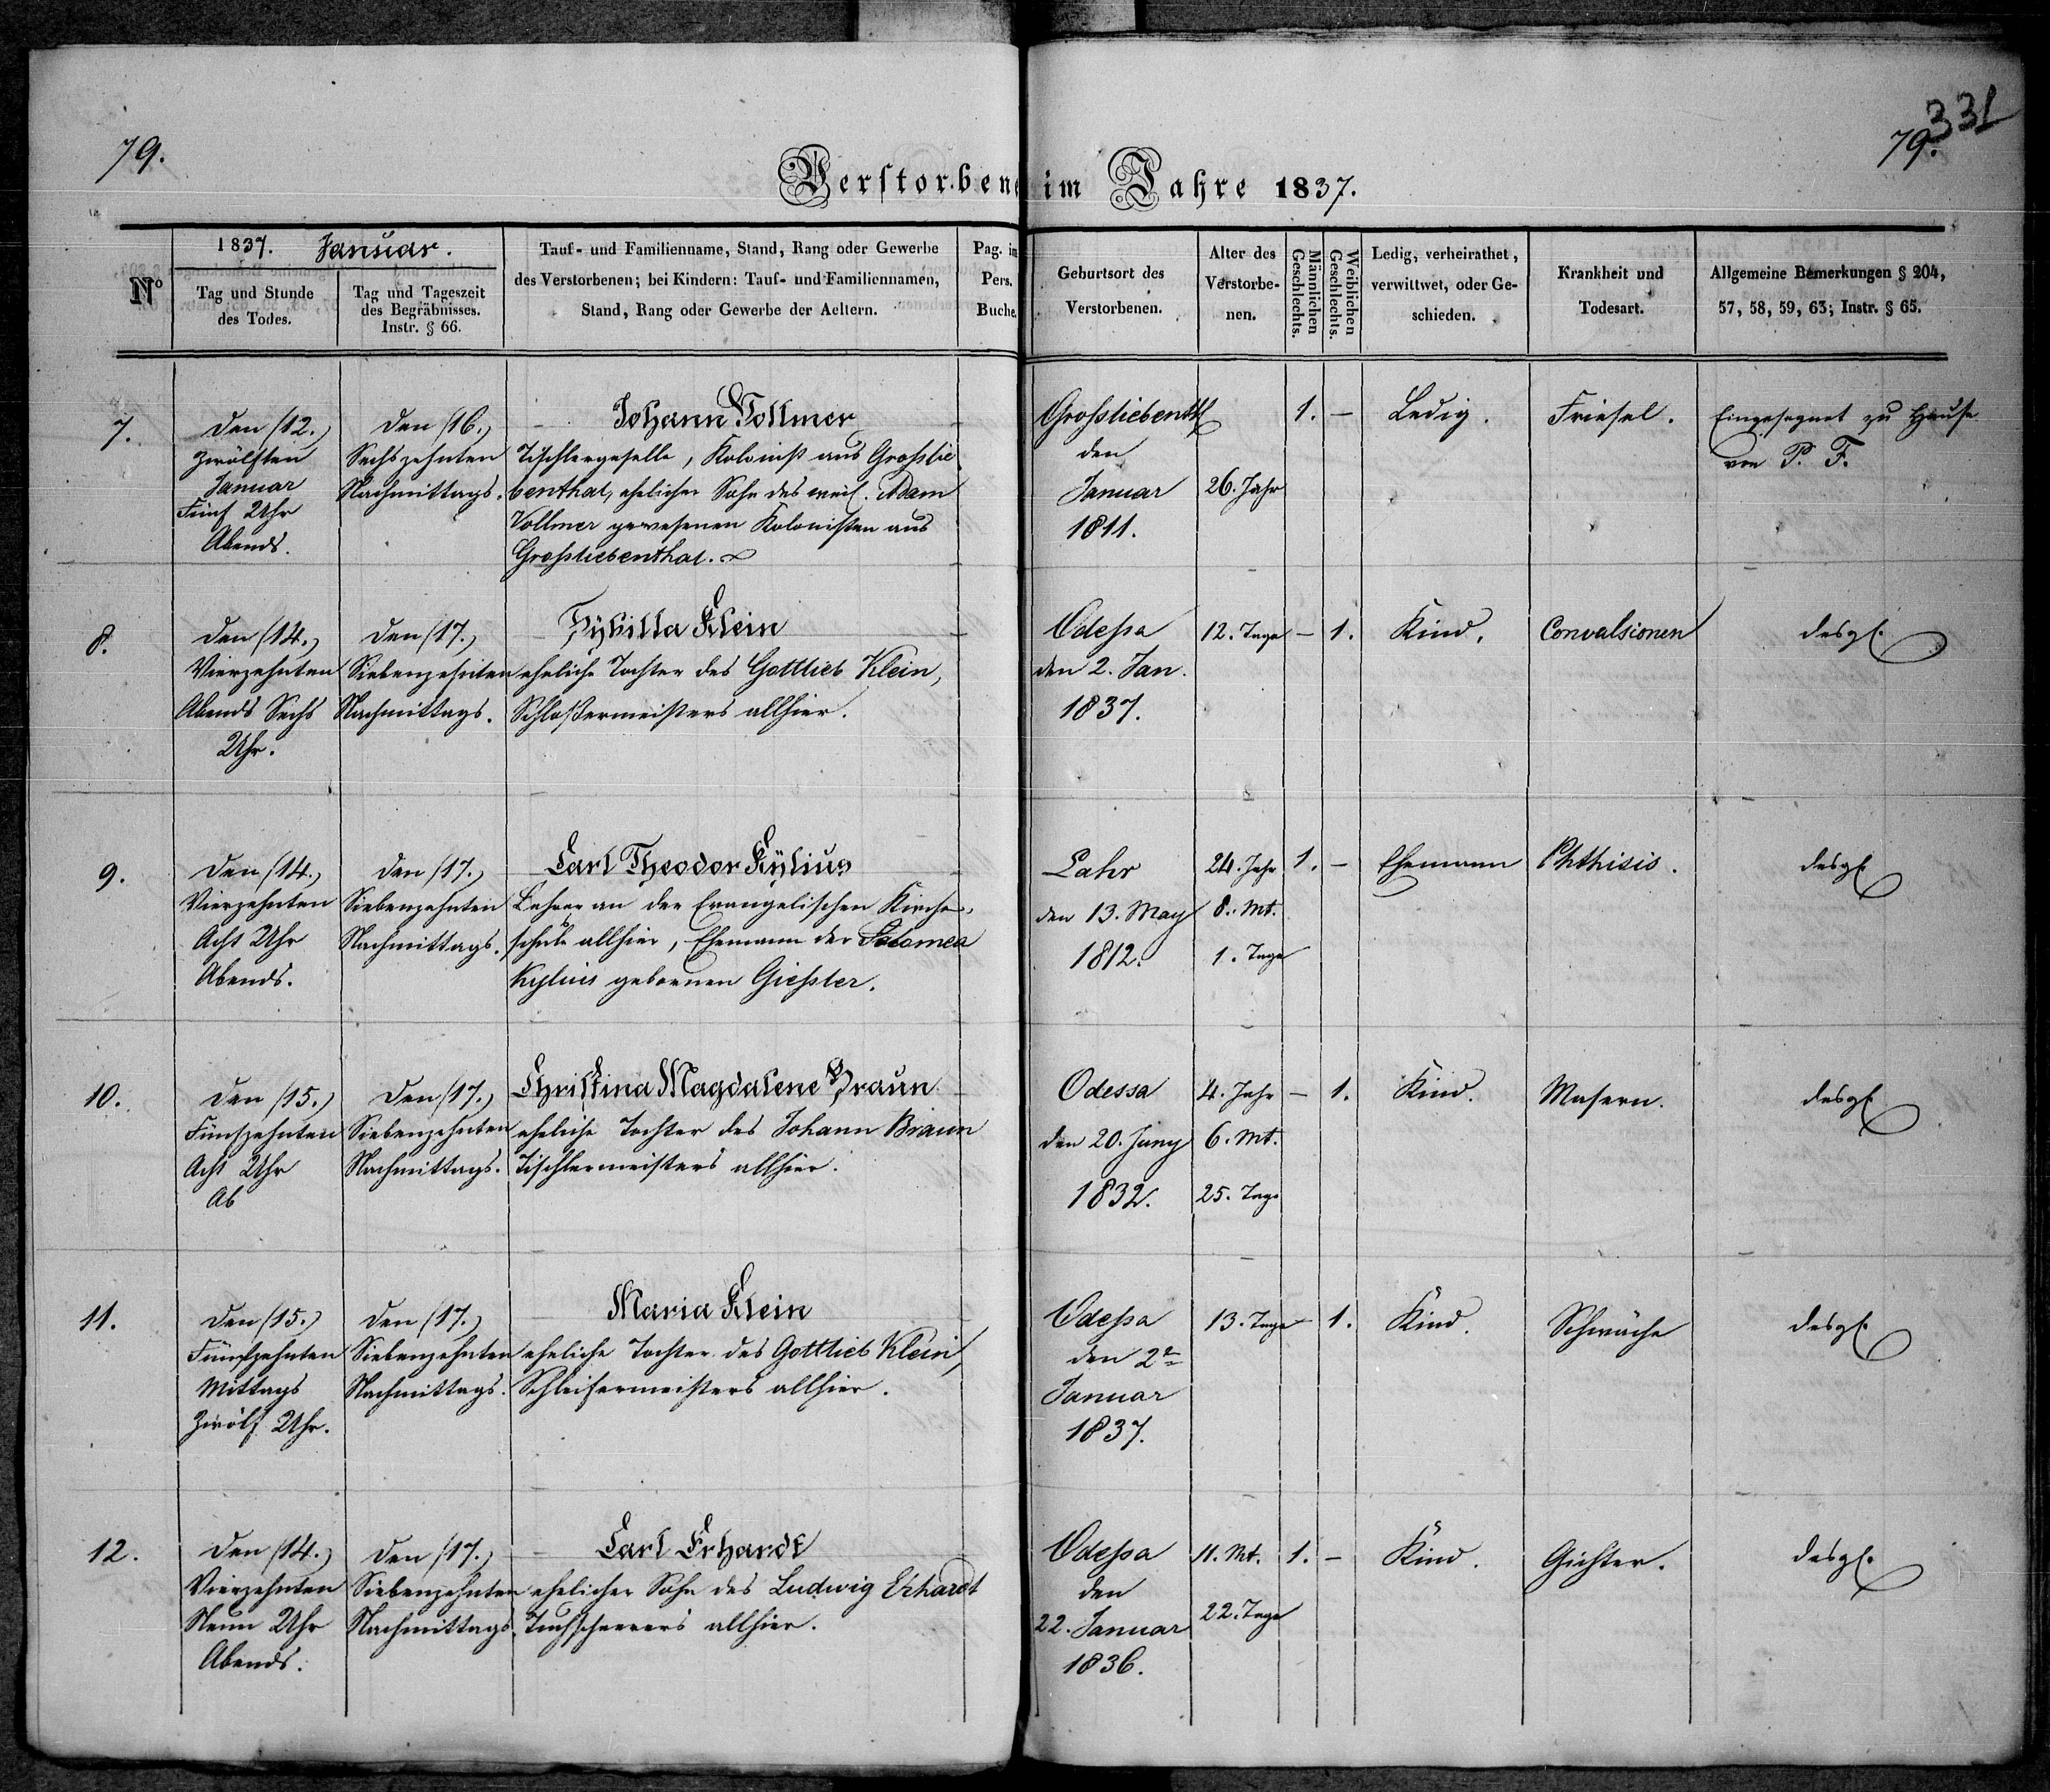 79.
79.
331
Verstorbene im Jahre 1837.
No
1837. Januar.
Tag und Stunde
des Todes.
Tag und Tageszeit
des Begräbnisses.
Instr. § 66.
Tauf- und Familienname, Stand, Rang oder Gewerbe
des Verstorbenen; bei Kindern: Tauf- und Familiennamen,
Stand, Rang oder Gewerbe der Aeltern.
Pag. im
Pers.
Buche.
Geburtsort des
Verstorbenen.
Alter des
Verstorbe-
nen.
Männlichen
Geschlechts.
Weiblichen
Geschlechts.
Ledig, verheirathet,
verwittwet, oder Ge-
schieden.
Krankheit und
Todesart.
Allgemeine Bemerkungen § 204,
57, 58, 59, 63; Instr. § 65.
7.
den (12.)
zwölften
Januar
Fünf Uhr
Abends.
den (16.)
Sechszehnten
Nachmittags.
Johann Vollmer
Tischlergeselle, Kolonist aus Großlie
benthal, ehelicher Sohn des weil. Adam
Vollmer gewesenen Kolonisten aus
Großliebenthal.
Großliebenthl
den
Januar
1811.
26. Jahr
1.
–
Ledig.
Friesel.
Eingesegnet zu Hause
von P. F.
8.
den (14.)
Vierzehnten
Abends Sechs
Uhr.
den (17.)
Siebenzehnten
Nachmittags.
Sybilla Klein
eheliche Tochter des Gottlieb Klein,
Schloßermeisters allhier.
Odeßa
den 2. Jan.
1837.
12. Tage
–
1.
Kind.
Convalsionen
desgl.
9.
den (14.)
Vierzehnten
Acht Uhr
Abends.
den (17.)
Siebenzehnten
Nachmittags.
Carl Theodor Kÿlius
Lehrer an der Evangelischen Kirchen,
schule allhier, Ehemann der Salomea
Kylius gebornen Gießler.
Lahr
den 13. May
1812.
24. Jahr
8. Mt.
1. Tage
1.
–
Ehemann
Phthisis.
desgl.
10.
den (15.)
Fünfzehnten
Acht Uhr
Ab
den (17.)
Siebenzehnten
Nachmittags.
Christina Magdalene Braun
eheliche Tochter des Johann Braun
Tischlermeisters allhier.
Odessa
den 20. Juny
1832.
4. Jahr
6. Mt.
25. Tage
–
1.
Kind.
Masern.
desgl.
11.
den (15.)
Fünfzehnten
Mittags
Zwölf Uhr.
den (17.)
Siebenzehnten
Nachmittags.
Maria Klein
eheliche Tochter des Gottlieb Klein,
Schleifermeisters allhier.
Odeßa
den 2n
Januar
1837.
13. Tage
–
1.
Kind.
Schwäche
desgl.
12.
den (14.)
Vierzehnten
Neun Uhr
Abends.
den (17.)
Siebenzehnten
Nachmittags.
Carl Erhardt
ehelicher Sohn des Ludwig Erhardt
Tuchscheerers allhier.
Odeßa
den
22. Januar
1836.
11. Mt.
22. Tage
1.
–
Kind.
Gichter.
desgl.